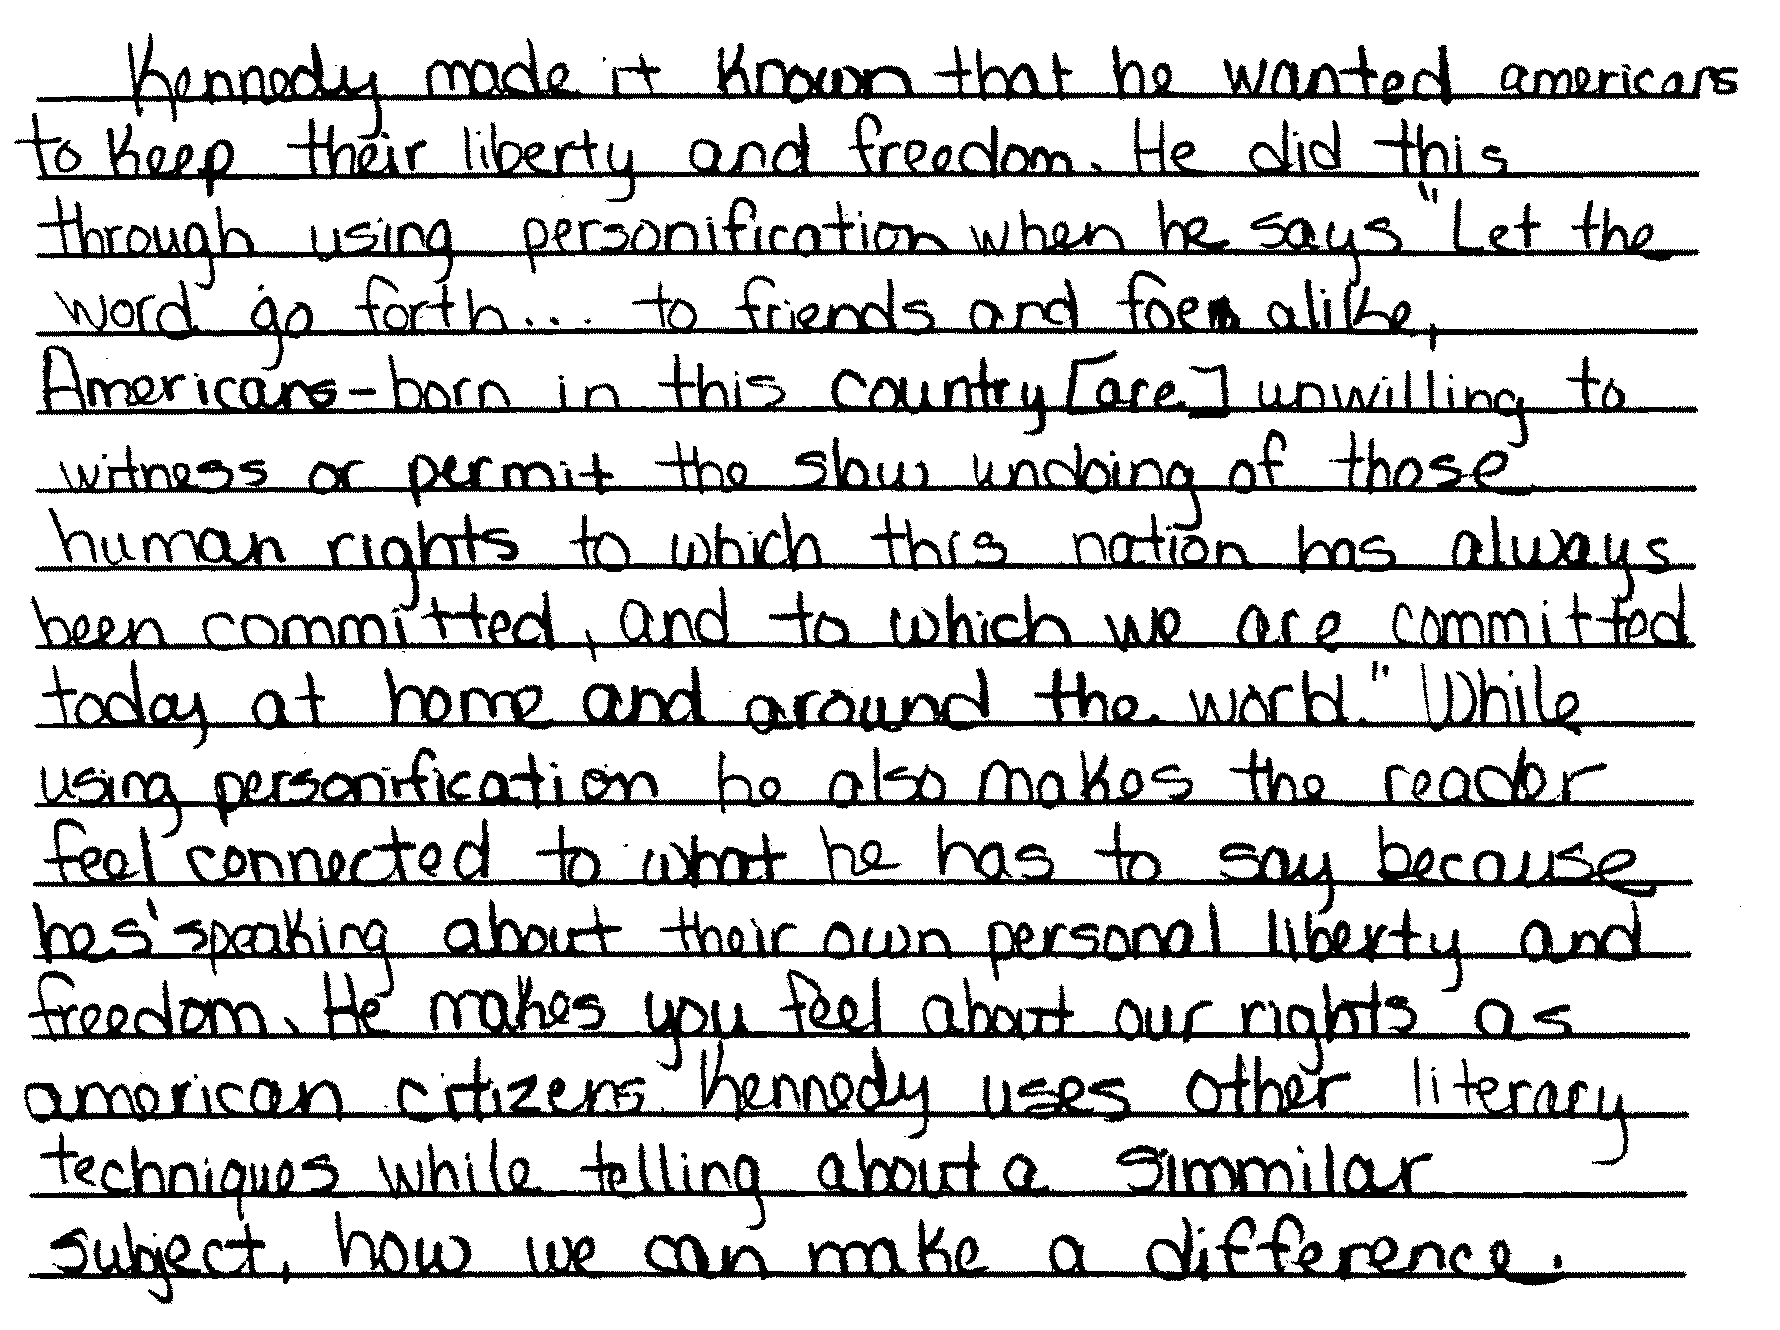 Kennedy made it known that he wanted americans
to keep their liberty and freedom. He did this
through using personification when he says "Let the
word go forth... to friends and foe alike,
Americans-born in this country [are] unwilling to
witness or permit the slow undoing of those
human rights to which this nation has always
been committed, and to which we are committed
today at home and around the world." While
using personification he also makes the reader
feel connected to what he has to say because
hes' speaking about their own personal liberty and
freedom. He makes you feel about our rights as
american citizens. Kennedy uses other literary
techniques while telling about a simmilar
subject, how we can make a difference.